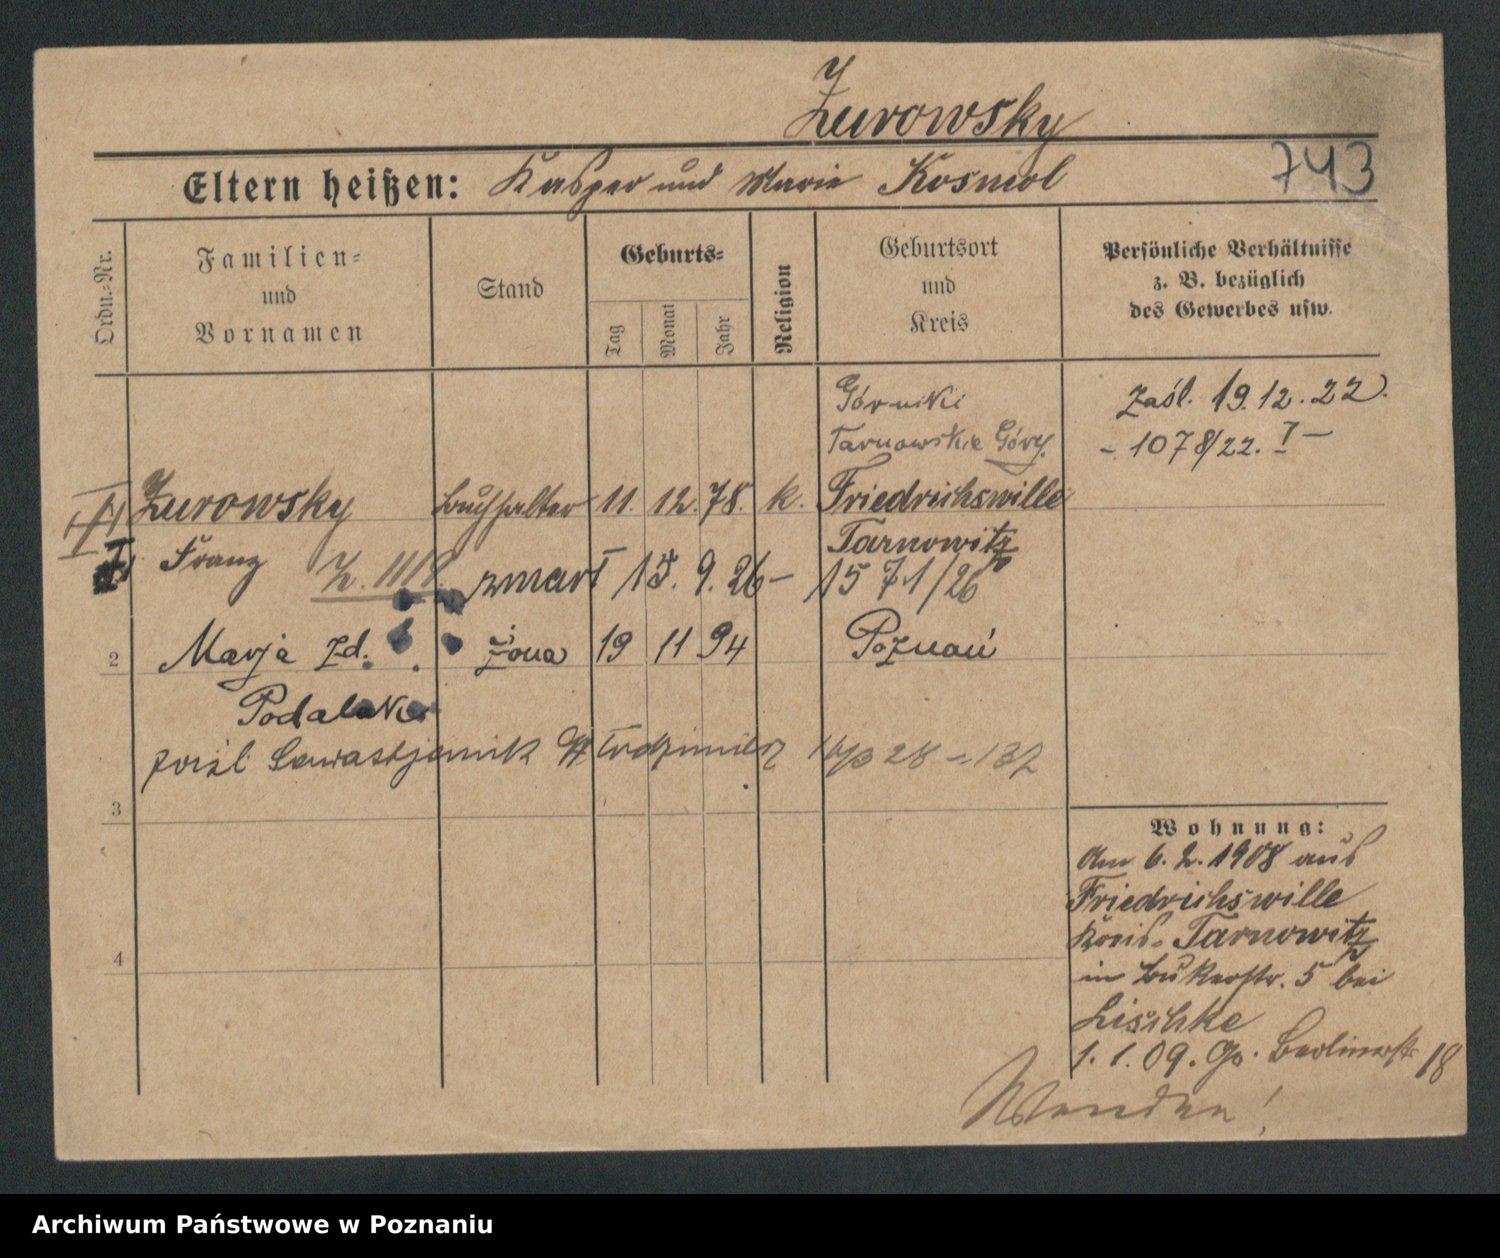 Żurowsky
Eltern heißen: Kasper und Marie Kosmol
743
Ordn.-Nr.
Familien-
und
Vornamen
Stand
Geburts-
Tag
Monat
Jahr
Religion
Geburtsort
und
Kreis
Persönliche Verhältnisse
z. B. bezüglich
des Gewerbes usw.
Górniki
Tarnowskie Góry
zaśl. 19.12.22.
- 1078/22. I -
Żurowsky Buchhalter 11. 12. 78. k. Friedrichswille
Tarnowitz
Franz
zmarł 15. 9. 26 - 1571/26
2 Marja zd. żona 19 11 94 Poznań
Podalak
zaśl Włodzimierz 28 - 137
3
4
Wohnung:
Am 6. 2. 1908 aus
Friedrichswille
Kreis Tarnowitz
in Bukerstr. 5 bei
Lischke
1. 1. 09. Berlinerstr 18
Wenden!
Archiwum Państwowe w Poznaniu